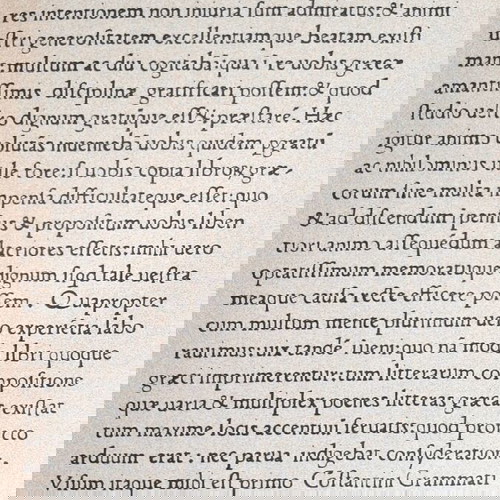 intentionem non iniuria sum admiratus: & animi
uestri generositatem excellentiamque beatam existi
maui: multum ac diu cogitabā: qua re uobis græcæ
amantissimis disciplinæ gratificari possem: & quod
studio uestro dignum gratúque esset: præstaré. Hæc
igitur animo uobis quidem gratú
ac nihilominus utile fore: si uobis copia libroꝝ græ
corum sine multa impensa difficultateque esset: quo
& ad discendum ipenitus & propositum uobis liben
tiori animo assequedum alacriores essetis: mihi uero
optatissimum memoratuque
dignum si quid tale uestra
meaque causa recte efficere possem. Quapropter
cum multum mente plurimum uero experiētia labo
rauimus: uix tandē iueni: quo nā modo libri quoque
græci imprimerentur: tum litterarum compositione
quæ uaria & multiplex poenes litteras græcas existat
tum maxime locis accentuū seruatis: quod profecto
arduum erat: nec parua indigebat consyderatione.
Visum itaque mihi est primo Constantini Grammati